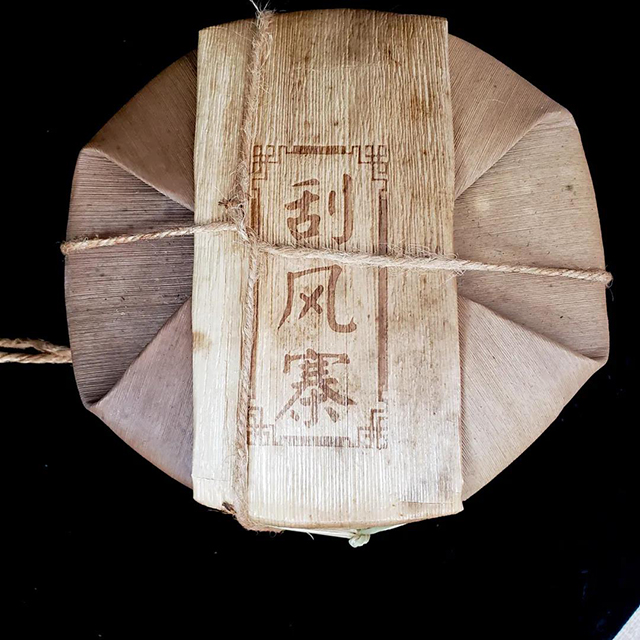 刮风寨